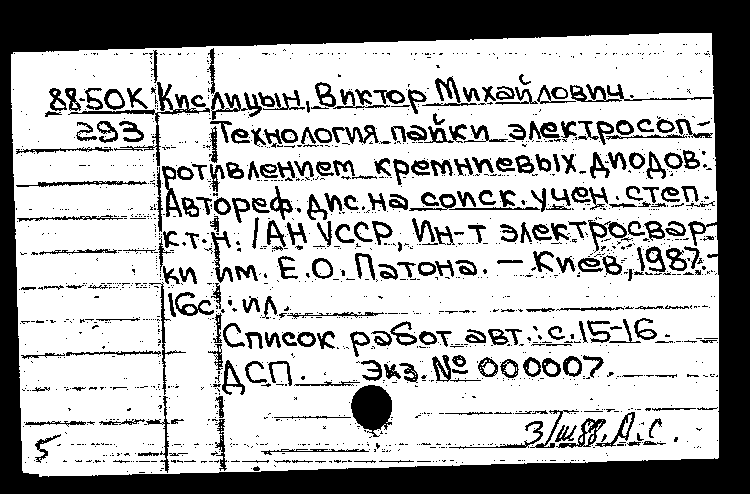 88-50К Кислицын, Виктор Михайлович.
293 Технология пайки электросоп-
ротивлением кремниевых диодов:
Автореф. дис. на соиск. учен. степ.
к.т.н. /АН УССР, Ин-т электросвар-
ки им. Е.О. Патона. — Киев, 1987.-
16с.: ил.
Список работ авт.: с. 15-16.
ДСП. Экз. № 000007.
3/III 88. А.С.
5